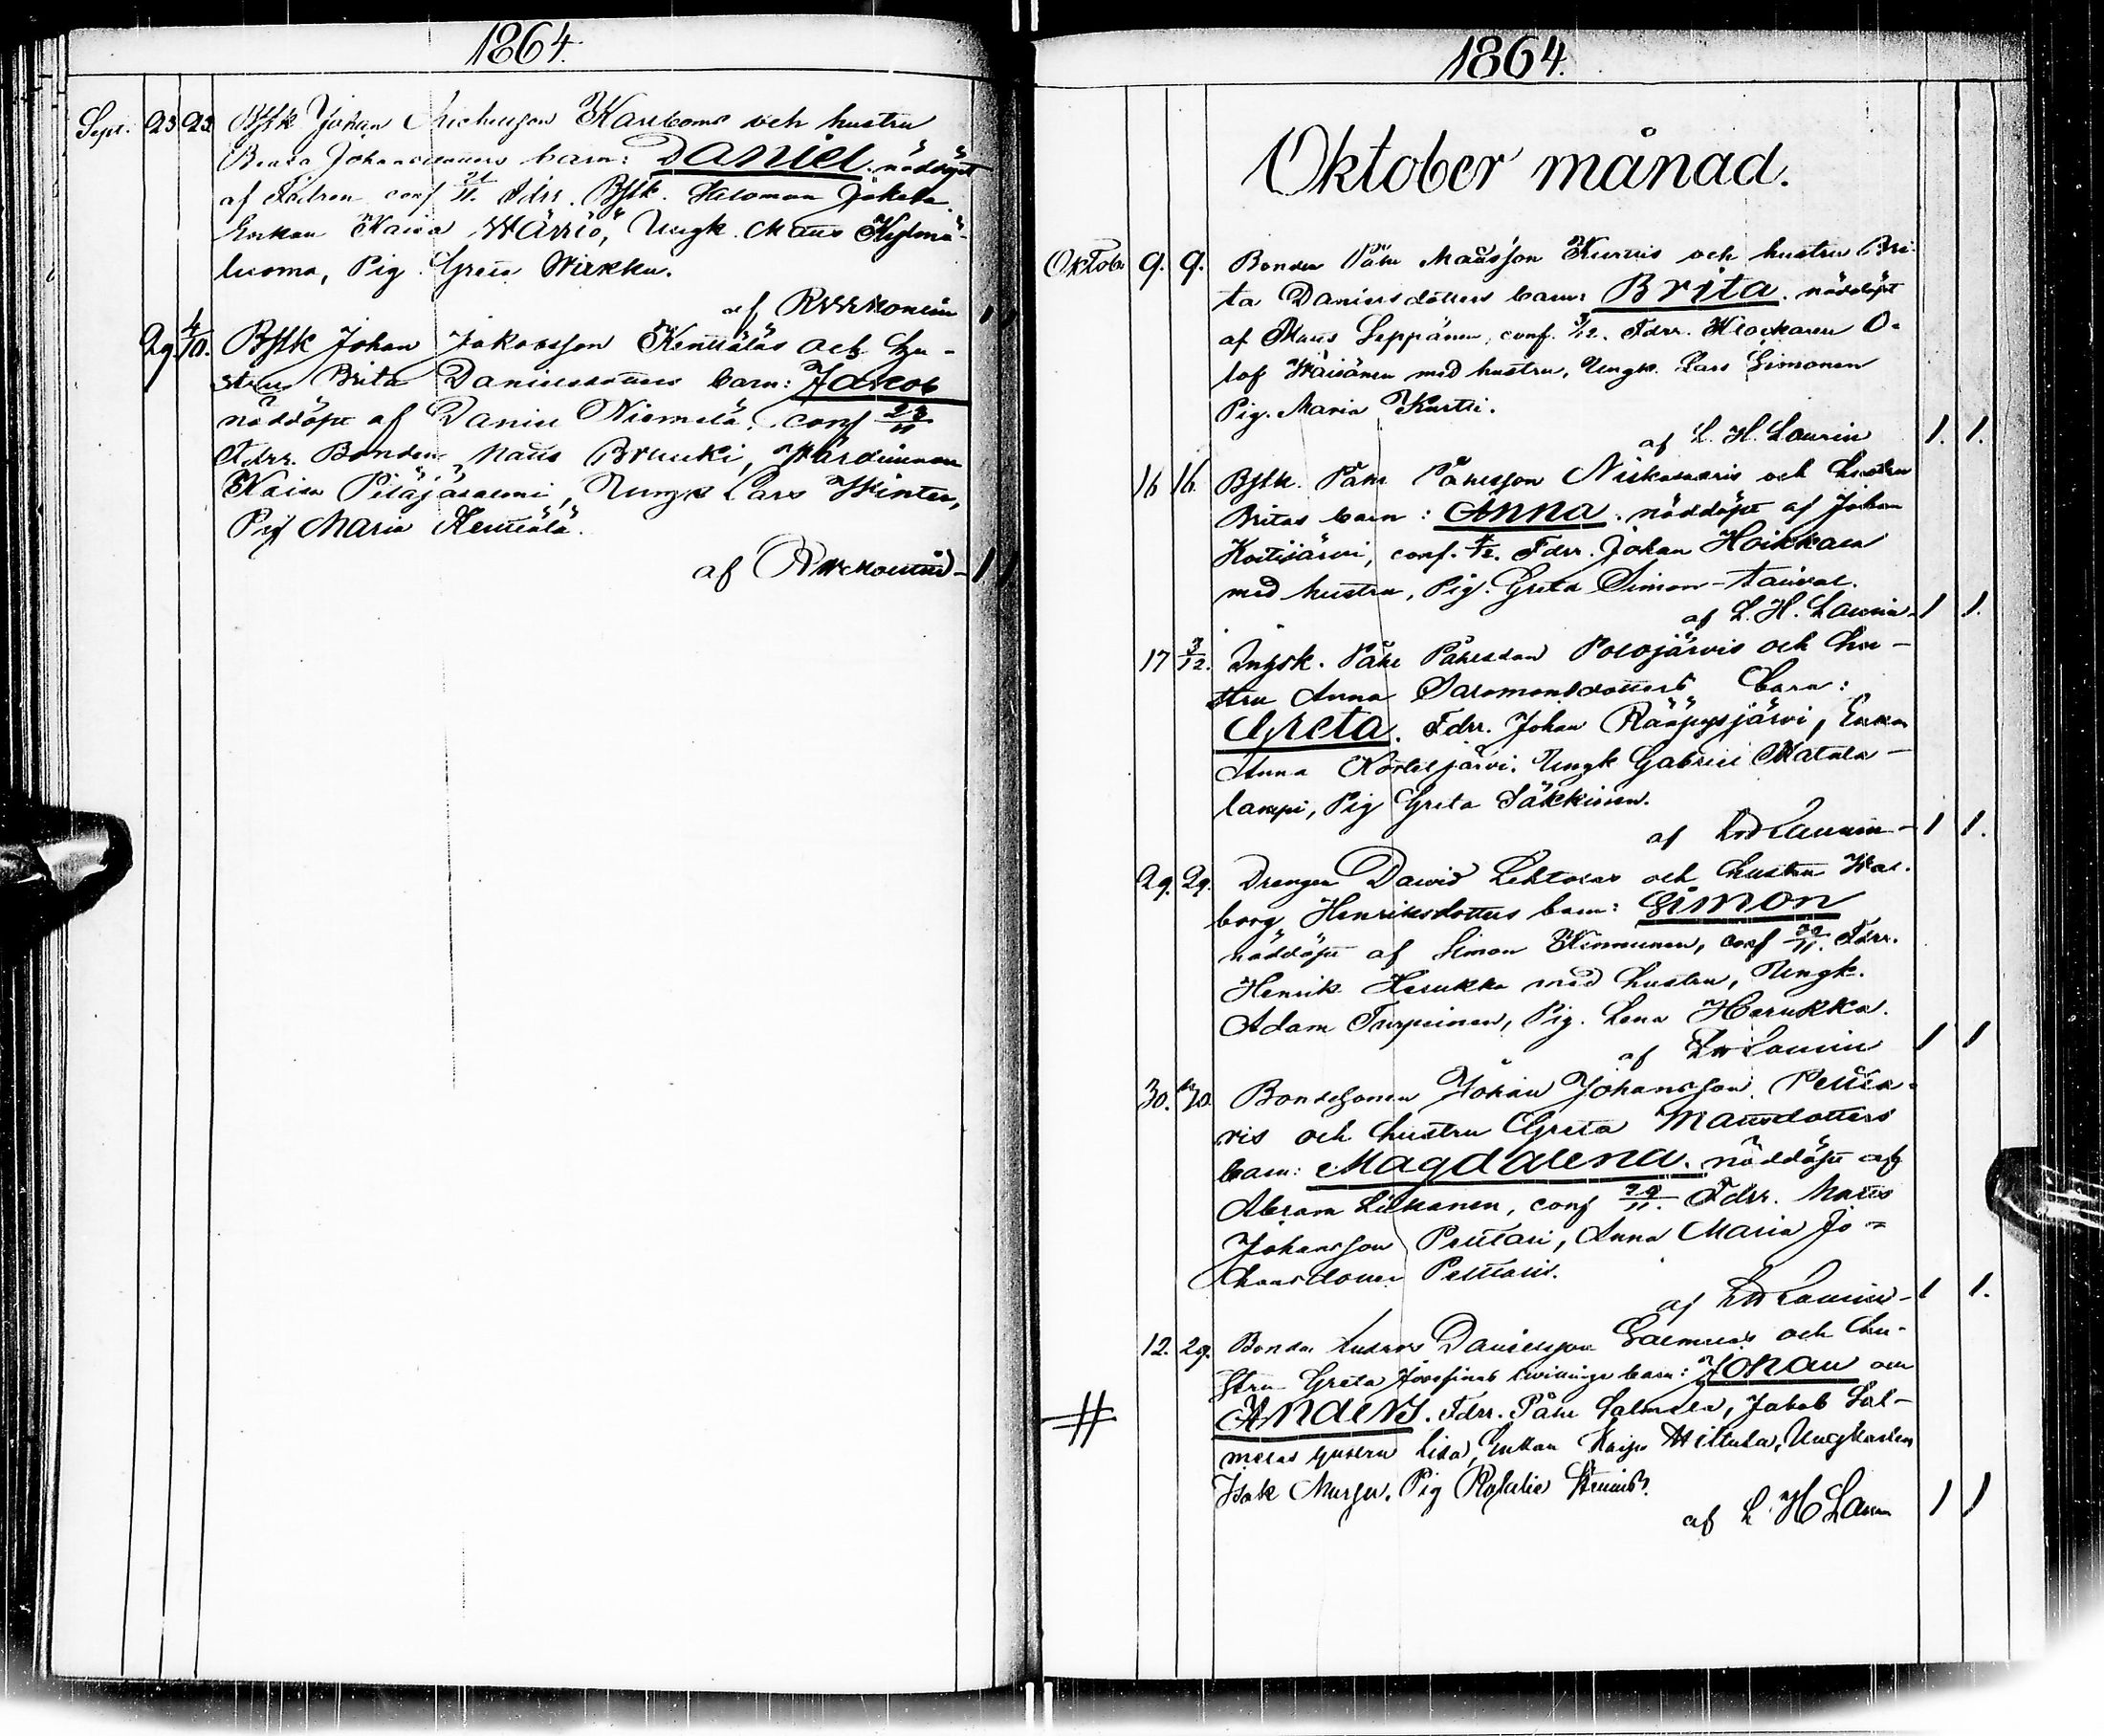 1864.
Sept. 23 23 Bfsk Johan Michelsson Karlboms och hustru
Johansdotters barn: Daniel. nöddöpt
af Fadren conf 21/11. Fdrr. Bfsk. Salomon Jokela
Enkan Kaisa Wärriö, Ungk. Mats Kylmä-
luoma, Pig. Greta Wirkku.
af
29. 4/10. Bfsk Johan Jakobsson Kenttäläs och hu-
stru Brita Danielsdotters barn: Jacob
nöddöpt af Daniel Niemelä, conf 23/11
Fdrr. Bonden Mats Bruuki, Wärdinnan
Kaisa Pitäjäsalmi, Ungk Lars Winter,
Pig Maria Kenttälä.
af
1 1
1864.
Oktober månad.
Oktob. 9. 9. Bonden Påhl Matsson Kurttis och hustru Bri-
ta Danielsdotters barn: Brita. nöddöpt
af Mats Seppänen, conf. 3/12. Fdrr. Klockaren O-
lof Wäisänen med hustru, Ungk. Lars Simonen
Pig. Maria Kurtti.
af L. H. Laurin 1. 1.
16 16. Bfsk. Påhl Påhlsson och hustru
Britas barn: Anna. nöddöpt af Johan
conf. 4/12. Fdrr. Johan Hoikkala
med hustru, Pig. Greta Simon-
af L. H. Laurin - 1 1.
17 3/12. Ingsk. Påhl Påhlsson Polojärvis och hu-
stru Anna Salomonsdotters barn:
Greta. Fdrr. Johan Rääpysjärvi, Enkan
Anna Korteljärvi. Ungk Gabriel Matala-
lampi, Pig Greta Säkkinen.
af LH Laurin - 1 1.
29. 29. Drengen David Lehtolas och hustru Wal-
borg Henriksdotters barn: Simon
nöddöpt af Simon Kinnunen, conf 29/11. Fdrr.
Henrik Harukka med hustru, Ungk.
Adam Turpeinen, Pig. Lena Harukka.
af LH Laurin 1 1
30. 30. Bondesonen Johan Johansson Pettia-
ris och hustru Greta Matsdotters
barn: Magdalena. nöddöpt af
Abram Liikanen, conf 29/11. Fdrr. Mats
Johansson Pruttari, Anna Maria Jo-
hansdotter
af LH Laurin - 1 1.
12. 29. Bonden Anders Danielsson Salmelas och hu-
stru Greta Josefinas twillinge barn: Johan och
# Anders. Fdrr. Påhl Salmela, Jakob Sal-
melas hustru Lisa, Enkan Kaisa Mittula, Ungkarlen
Isak Pig
af L H Laurin 1 1